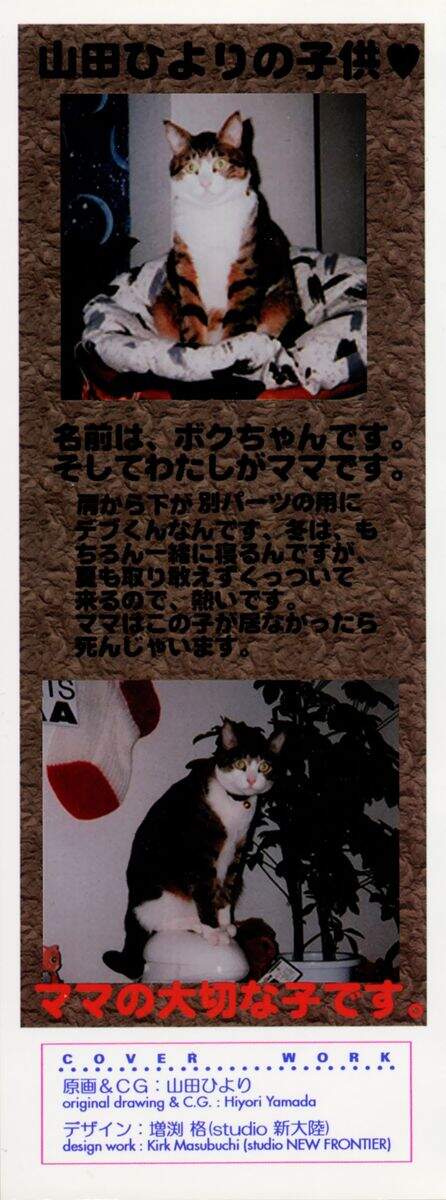 山田ひよりの子供♥
名前は、ボクちゃんです。
そしてわたしがママです。
肩から下が別パーツの用に
デブくんなんです、冬は、も
ちろん一緒に寝るんですが、
夏も取り敢えずくっついて
来るので、熱いです。
ママはこの子が居なかったら
死んじゃいます。
TS
A
ママの大切な子です。
COVER WORK
原画&CG：山田ひより
original drawing & C.G. : Hiyori Yamada
デザイン：増渕 格(studio 新大陸)
design work : Kirk Masubuchi (studio NEW FRONTIER)